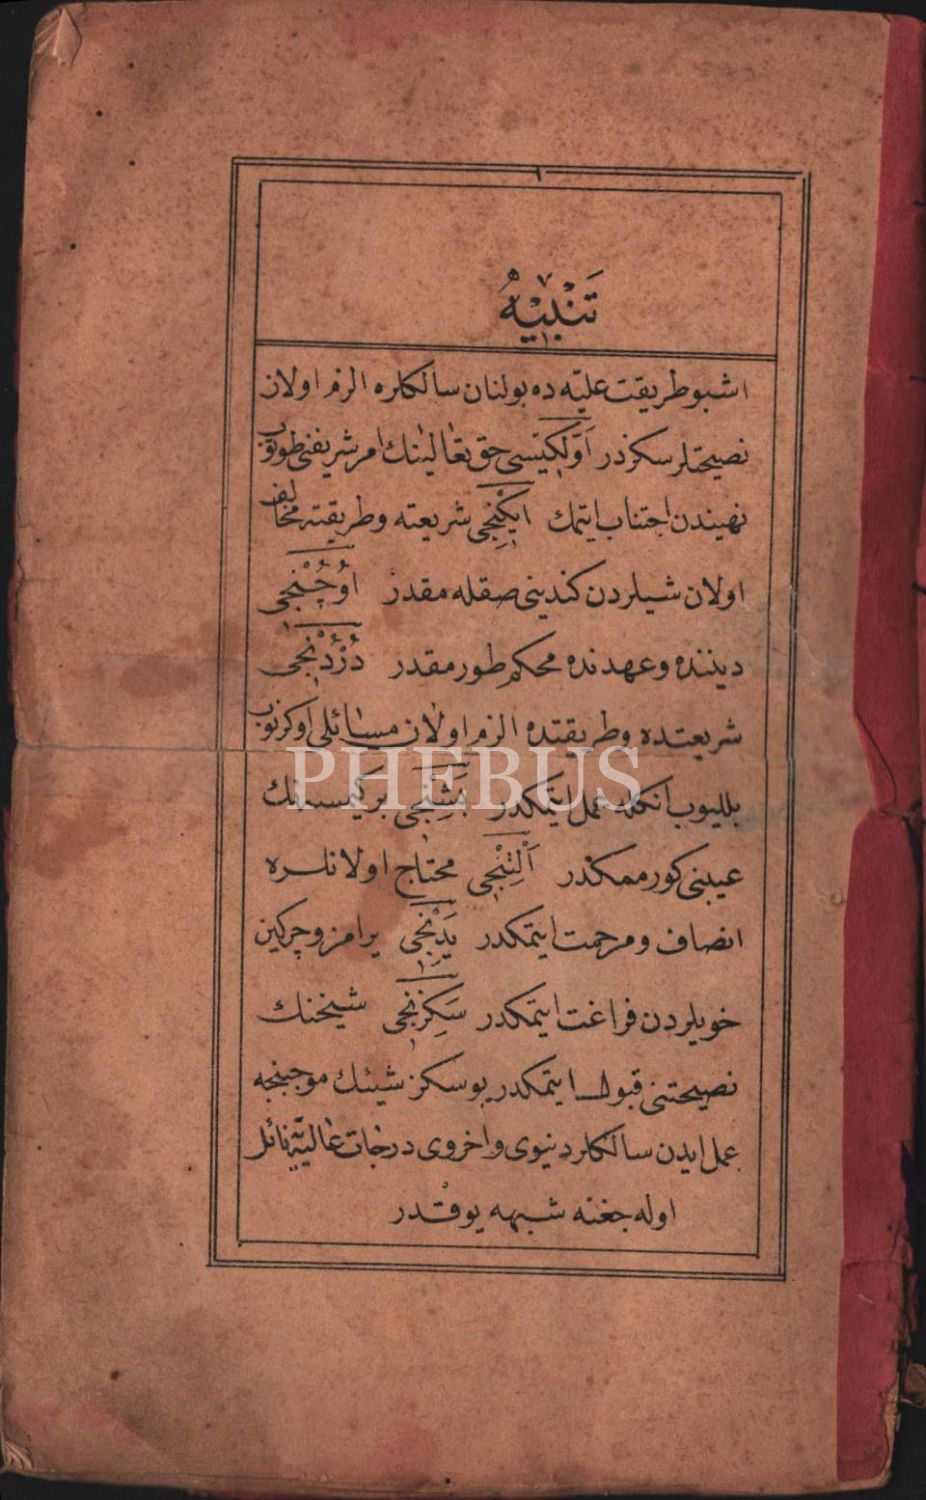 تَنْبِيْهْ
اشبو طريقت عليّه ده بولنان سالكلره الزم اولان
نصيحتلر سكزدر اَوَّلكيسى حق تعالينك امر شريفنى طوتوب
نهيندن اجتناب ايتمك ايكِنْجِى شريعته وطريقته مخالف
اولان شيلردن كندينى صقله مقدر اُوچُنْجِى
ديننده وعهدنده محكم طورمقدر دُرْدُنْجِى
شريعتده وطريقتده الزم اولان مسائلى اوكرنوب
بلليوب انكله عمل ايتمكدر بَشِنْجِى بر كيمسه نك
عيبنى كورممكدر اَلْتِنْجِى محتاج اولانلره
انصاف ومرحمت ايتمكدر يَدِنْجِى يرامز وچركين
خويلردن فراغت ايتمكدر سَكِزِنْجِى شيخنك
نصيحتنى قبول ايتمكدر بو سكز شيئك موجبنجه
عمل ايدن سالكلر دنيوى واخروى درجات عاليّه نائل
اوله جغنه شبهه يوقدر
PHEBUS